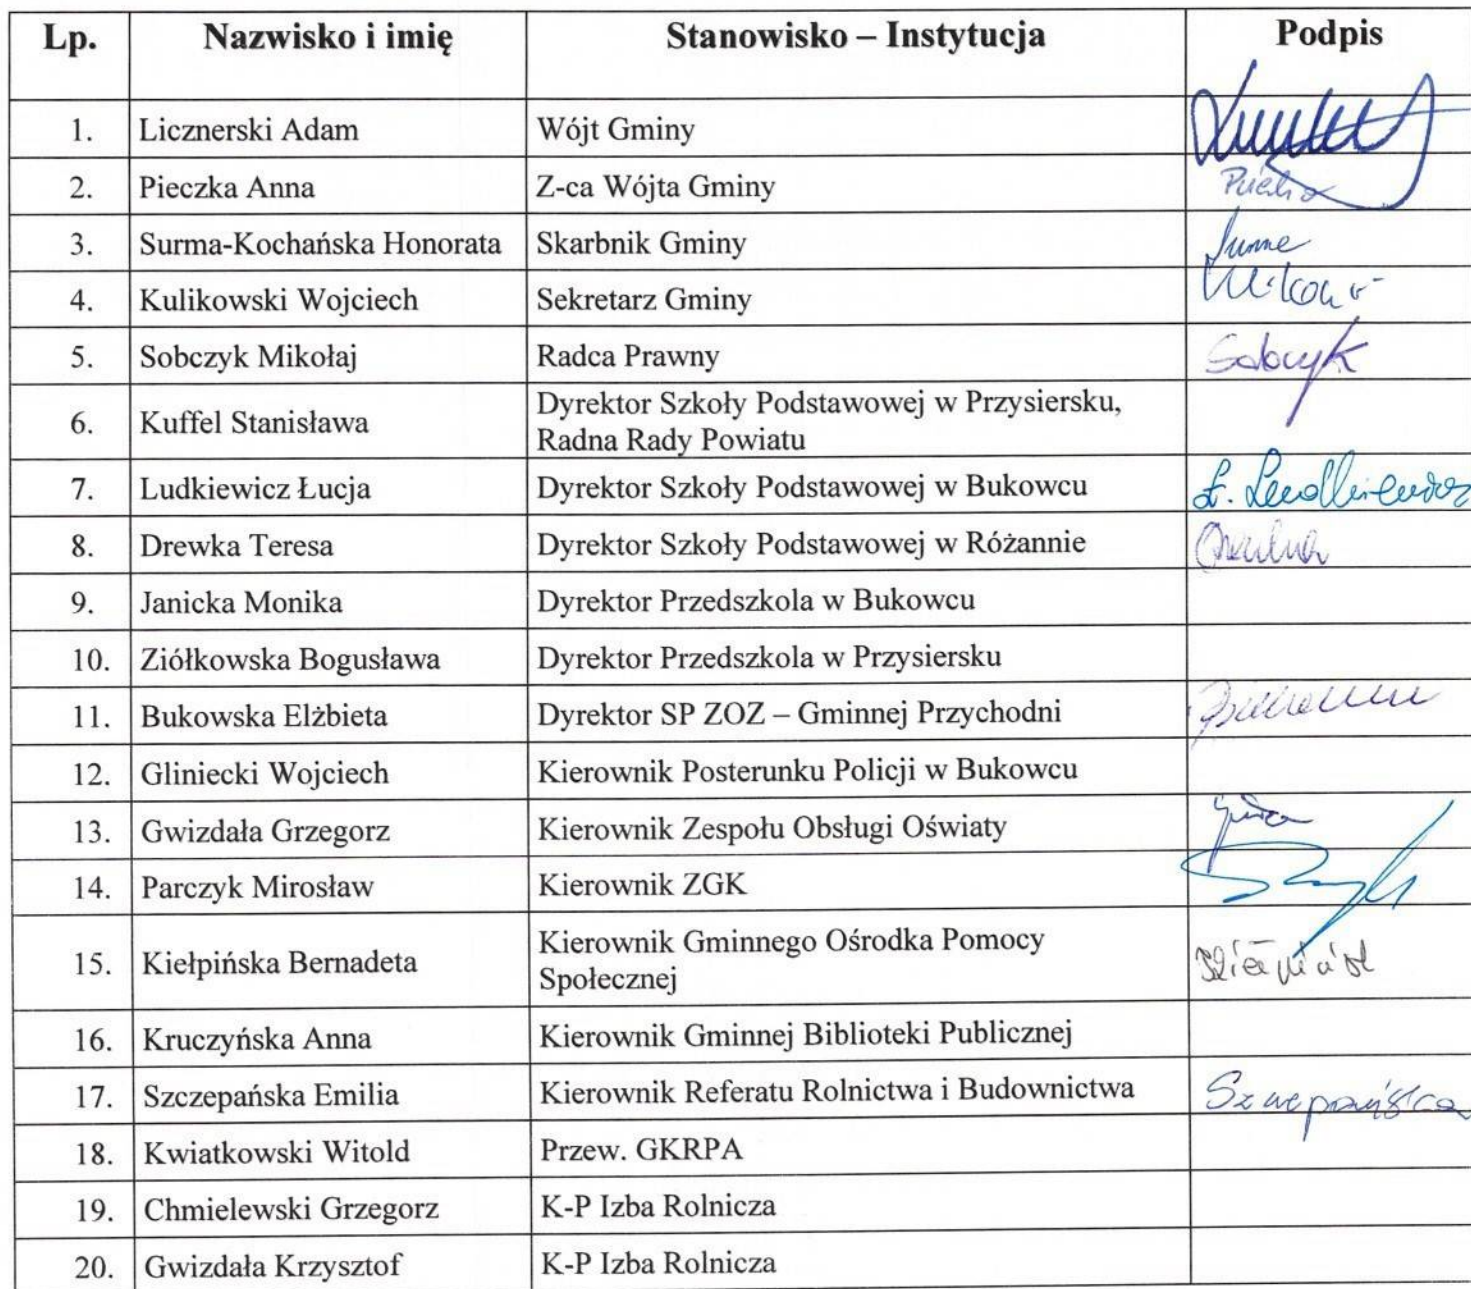 Lp. Nazwisko i imię Stanowisko – Instytucja Podpis
1. Licznerski Adam Wójt Gminy
2. Pieczka Anna Z-ca Wójta Gminy
3. Surma-Kochańska Honorata Skarbnik Gminy
4. Kulikowski Wojciech Sekretarz Gminy
5. Sobczyk Mikołaj Radca Prawny Sobczyk
6. Kuffel Stanisława Dyrektor Szkoły Podstawowej w Przysiersku,
Radna Rady Powiatu
7. Ludkiewicz Łucja Dyrektor Szkoły Podstawowej w Bukowcu Ł. Ludkiewicz
8. Drewka Teresa Dyrektor Szkoły Podstawowej w Różannie
9. Janicka Monika Dyrektor Przedszkola w Bukowcu
10. Ziółkowska Bogusława Dyrektor Przedszkola w Przysiersku
11. Bukowska Elżbieta Dyrektor SP ZOZ – Gminnej Przychodni
12. Gliniecki Wojciech Kierownik Posterunku Policji w Bukowcu
13. Gwizdała Grzegorz Kierownik Zespołu Obsługi Oświaty
14. Parczyk Mirosław Kierownik ZGK
15. Kiełpińska Bernadeta Kierownik Gminnego Ośrodka Pomocy
Społecznej
16. Kruczyńska Anna Kierownik Gminnej Biblioteki Publicznej
17. Szczepańska Emilia Kierownik Referatu Rolnictwa i Budownictwa Szczepańska
18. Kwiatkowski Witold Przew. GKRPA
19. Chmielewski Grzegorz K-P Izba Rolnicza
20. Gwizdała Krzysztof K-P Izba Rolnicza